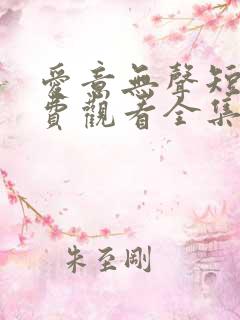 愛意無聲短
費觀看全集
朱至剛